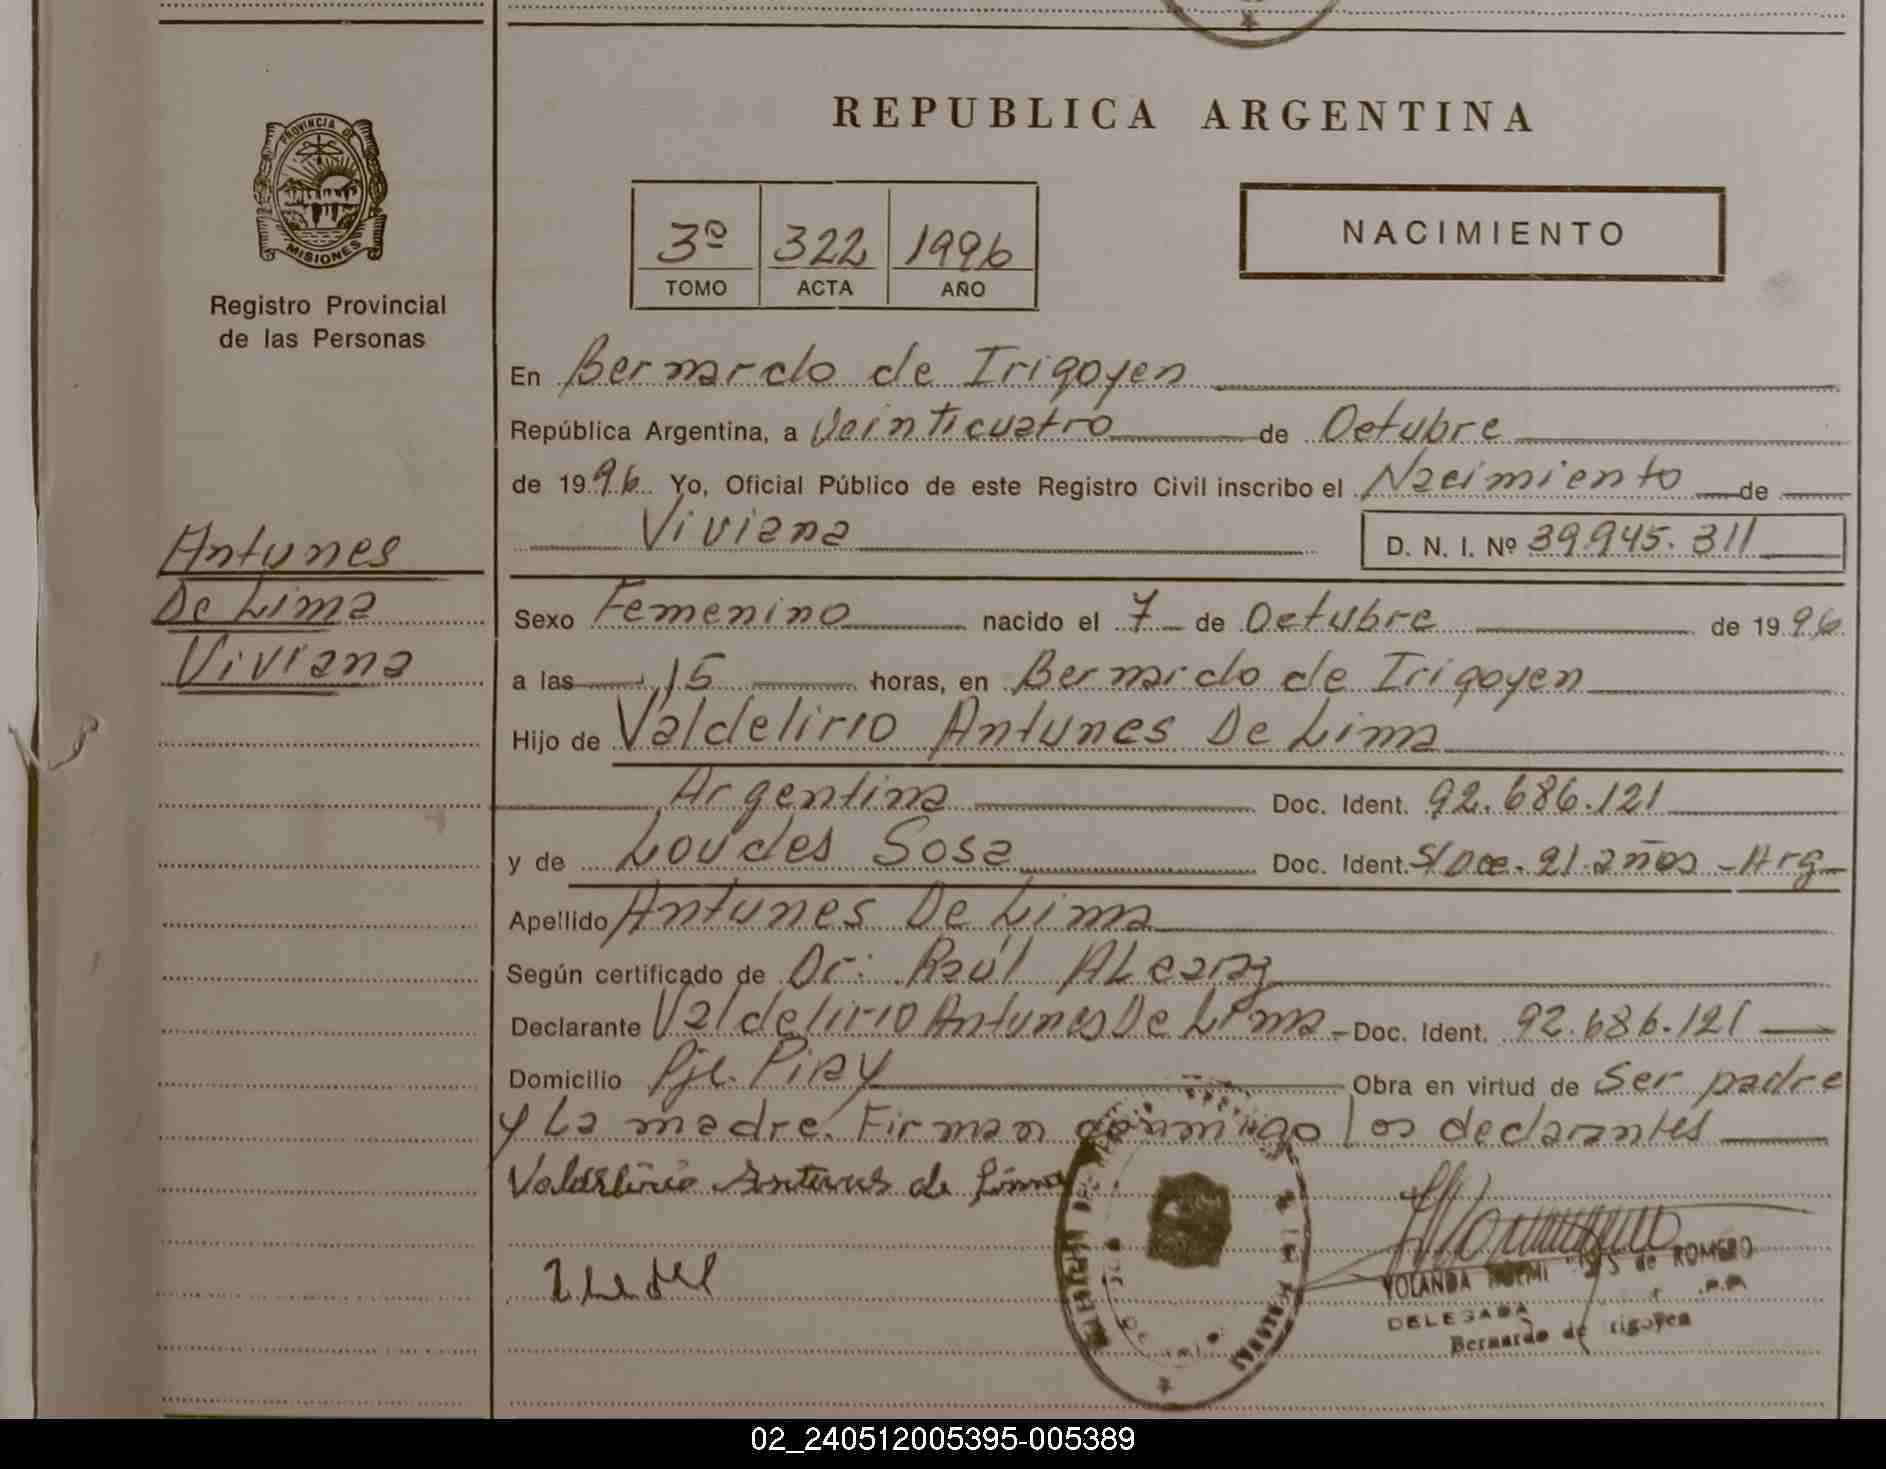 REPUBLICA ARGENTINA
PROVINCIA DE
MISIONES
Registro Provincial
de las Personas
3º 322 1996
TOMO ACTA AÑO
NACIMIENTO
En Bernardo de Irigoyen
República Argentina, a Veinticuatro de Octubre
de 1996 Yo, Oficial Público de este Registro Civil inscribo el Nacimiento de
Viviana D. N. I. Nº 39.945.311
Antunes
De Lima
Viviana
Sexo Femenino nacido el 7 de Octubre de 1996
a las 15 horas, en Bernardo de Irigoyen
Hijo de Valdelirio Antunes De Lima
Argentina Doc. Ident. 92.686.121
y de Loudes Sosa Doc. Ident. S/Doc. 21 años - Arg
Apellido Antunes De Lima
Según certificado de Dr. Raúl ALcaraz
Declarante Valdelirio Antunes De Lima - Doc. Ident. 92.686.121
Domicilio Pje. Piray Obra en virtud de Ser padre
y La madre. Firman conmigo los declarantes
Valdelirio Antunes de Lima
YOLANDA NOEMI de ROMERO
DELEGADA
Bernardo de Irigoyen
02_240512005395-005389